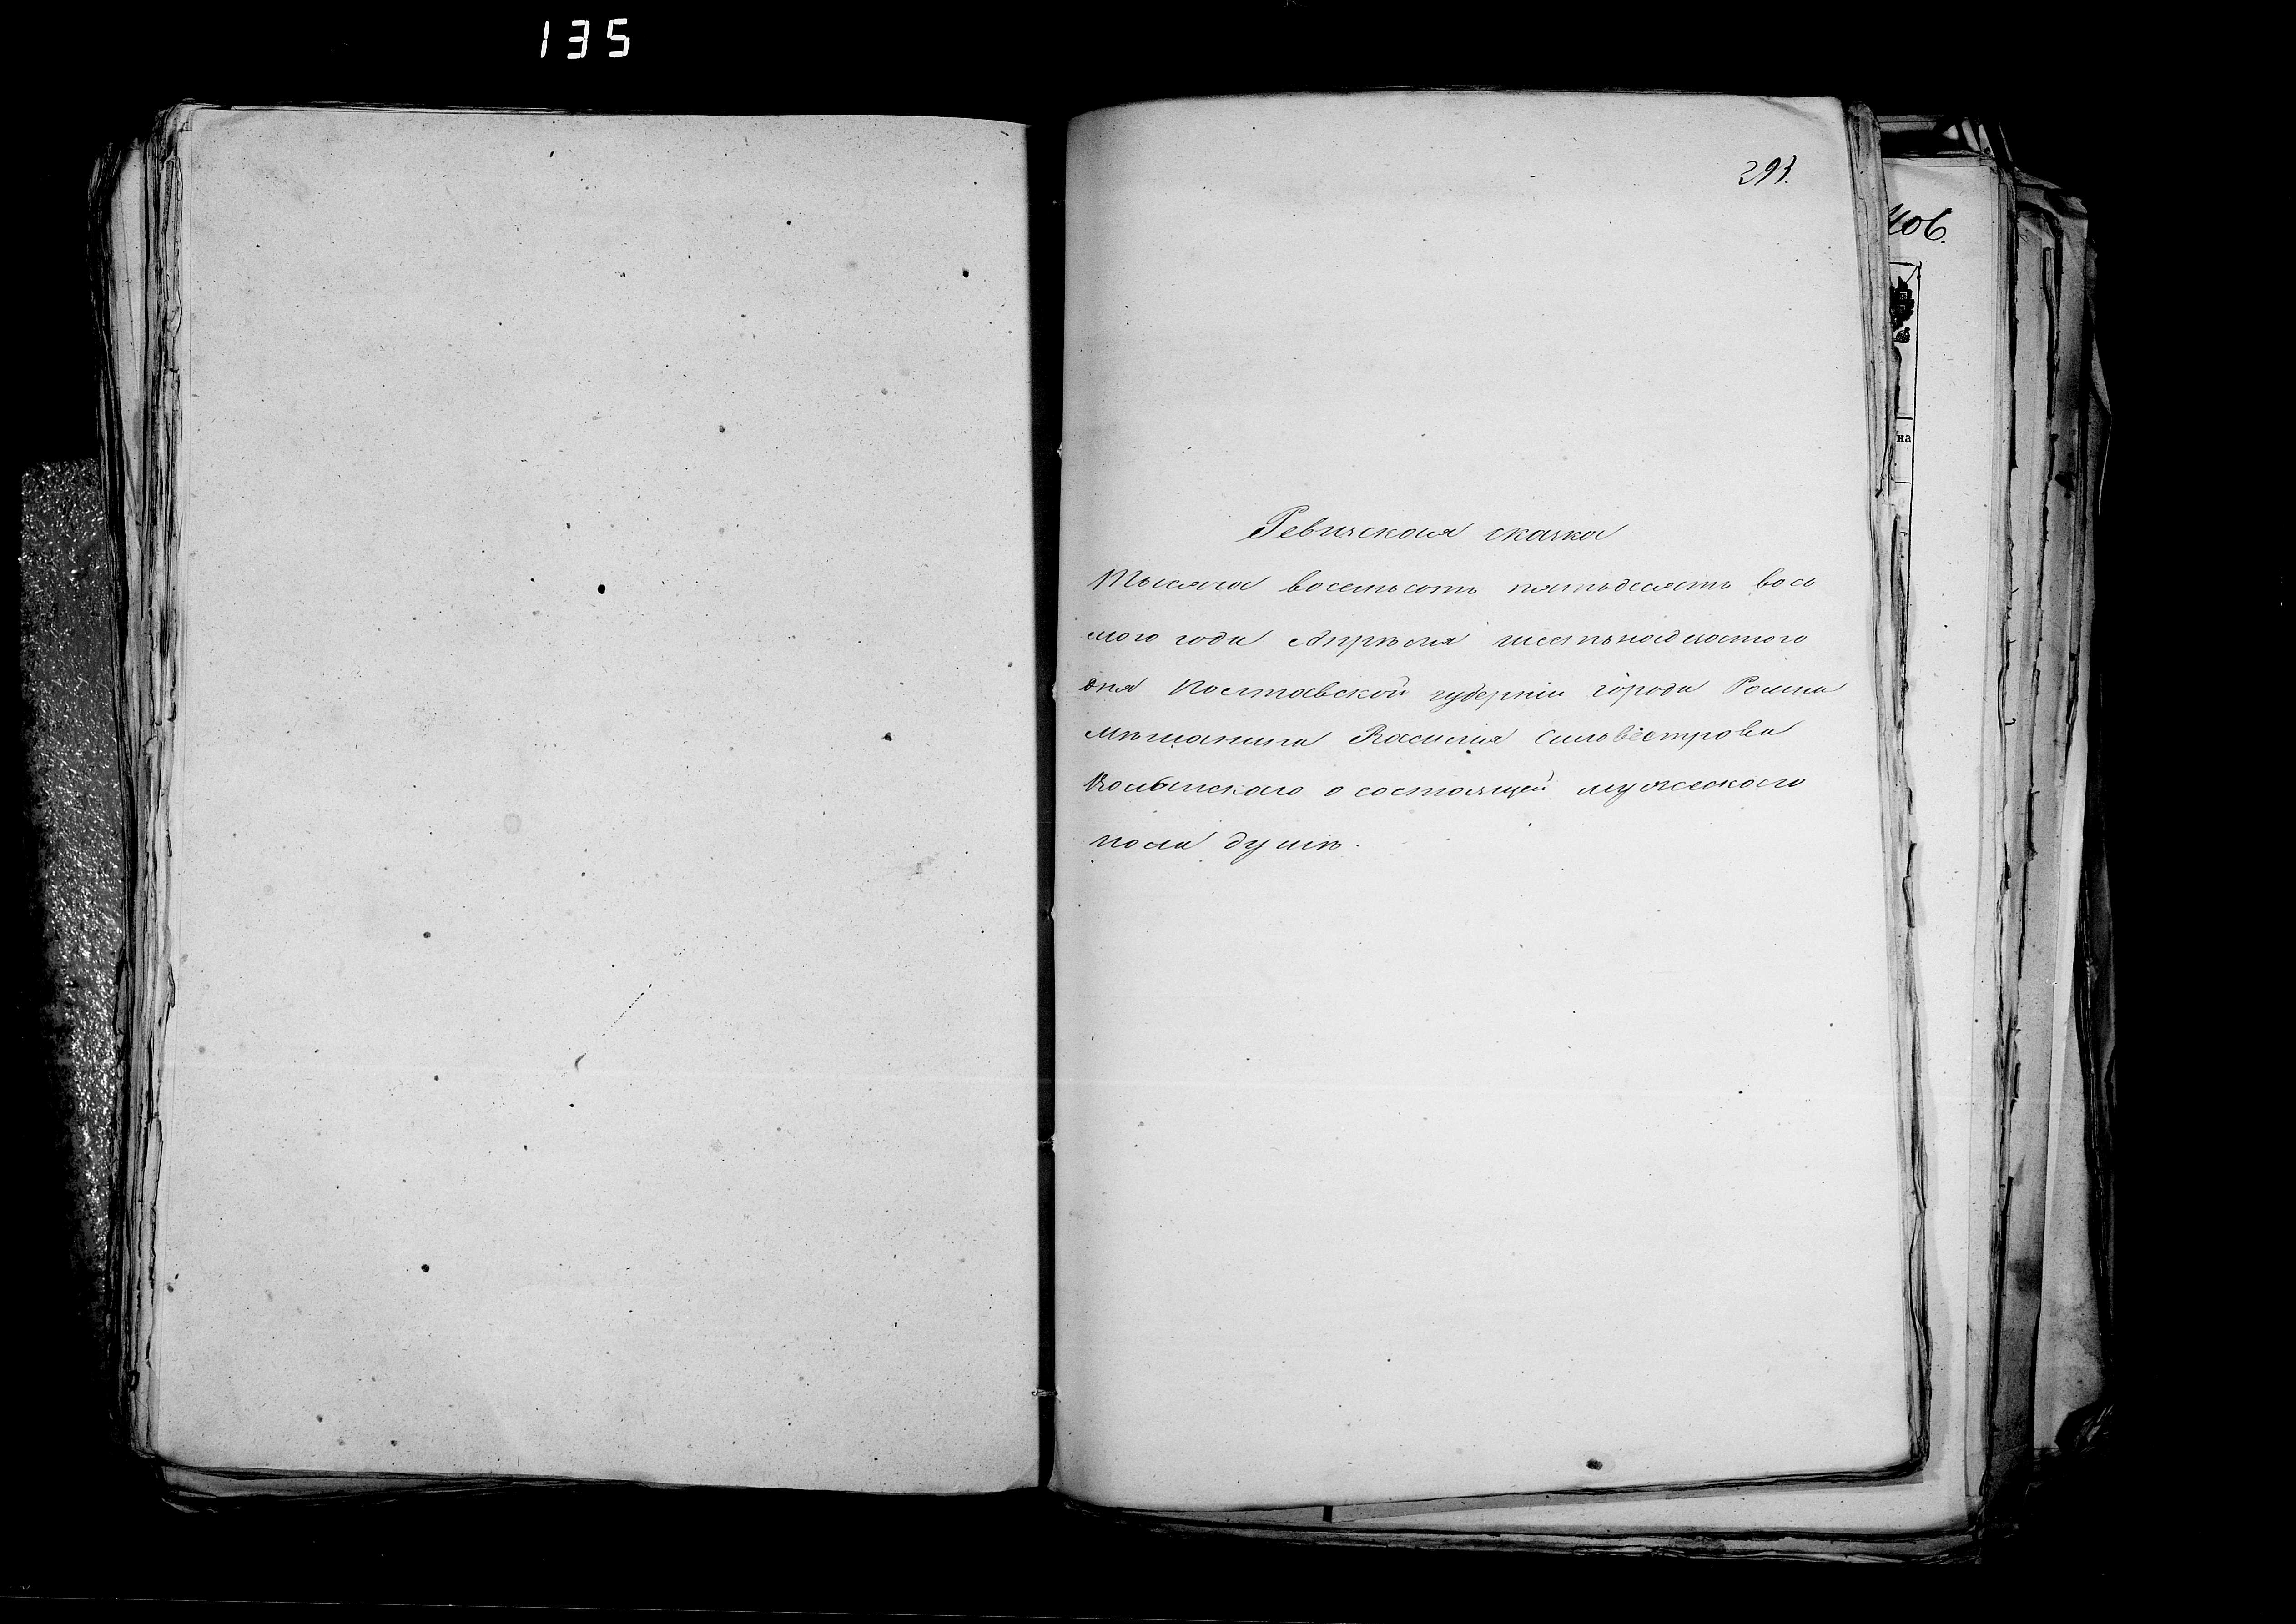 135
406.
на
Ревизская сказка
Тысяча восемьсотъ пятьдесятъ вось
мого года Апрѣля шестьнадцатого
дня Полтавской губерніи города Ромна
мѣщанина Василия Сильвестрова
о состоящей мужескаго
пола душѣ.